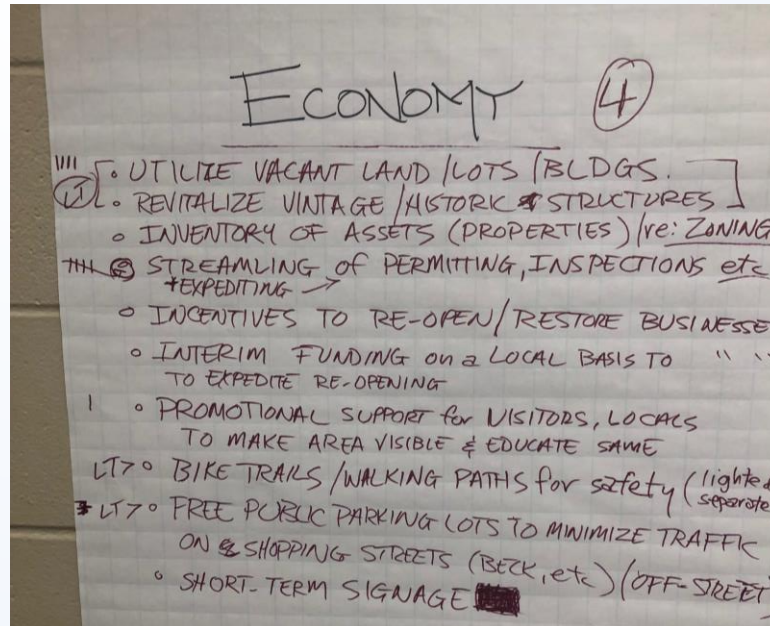 ECONOMY 4
IIII • UTILIZE VACANT LAND /LOTS /BLDGS.
LT • REVITALIZE VINTAGE /HISTORIC STRUCTURES
• INVENTORY OF ASSETS (PROPERTIES) /re: ZONING
STREAMLING of PERMITTING, INSPECTIONS etc
*EXPEDITING →
• INCENTIVES TO RE-OPEN/RESTORE BUSINESSE
• INTERIM FUNDING on a LOCAL BASIS TO " "
TO EXPEDITE RE-OPENING
I • PROMOTIONAL SUPPORT for VISITORS, LOCALS
TO MAKE AREA VISIBLE & EDUCATE SAME
LT> • BIKE TRAILS /WALKING PATHS for safety (lighted
separate
* LT> • FREE PUBLIC PARKING LOTS TO MINIMIZE TRAFFIC
ON SHOPPING STREETS (BECK, etc) (OFF-STREET
• SHORT-TERM SIGNAGE